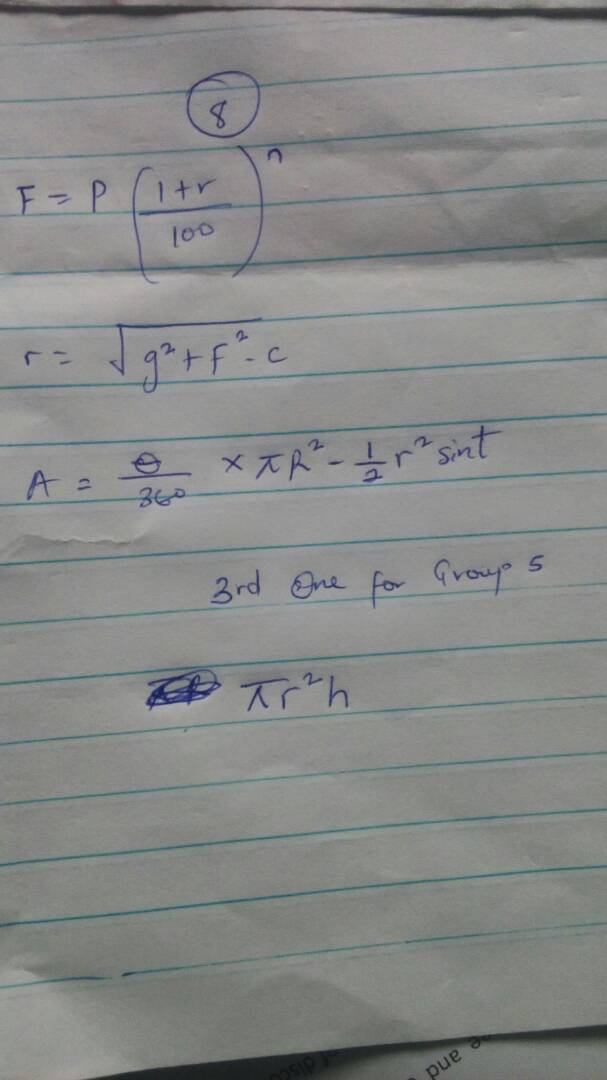 8
F = P (1+r/100)^n
r = √g²+f²-c
A = θ/360 × πR² - 1/2 r² sint
3rd One for Group 5
πr²h